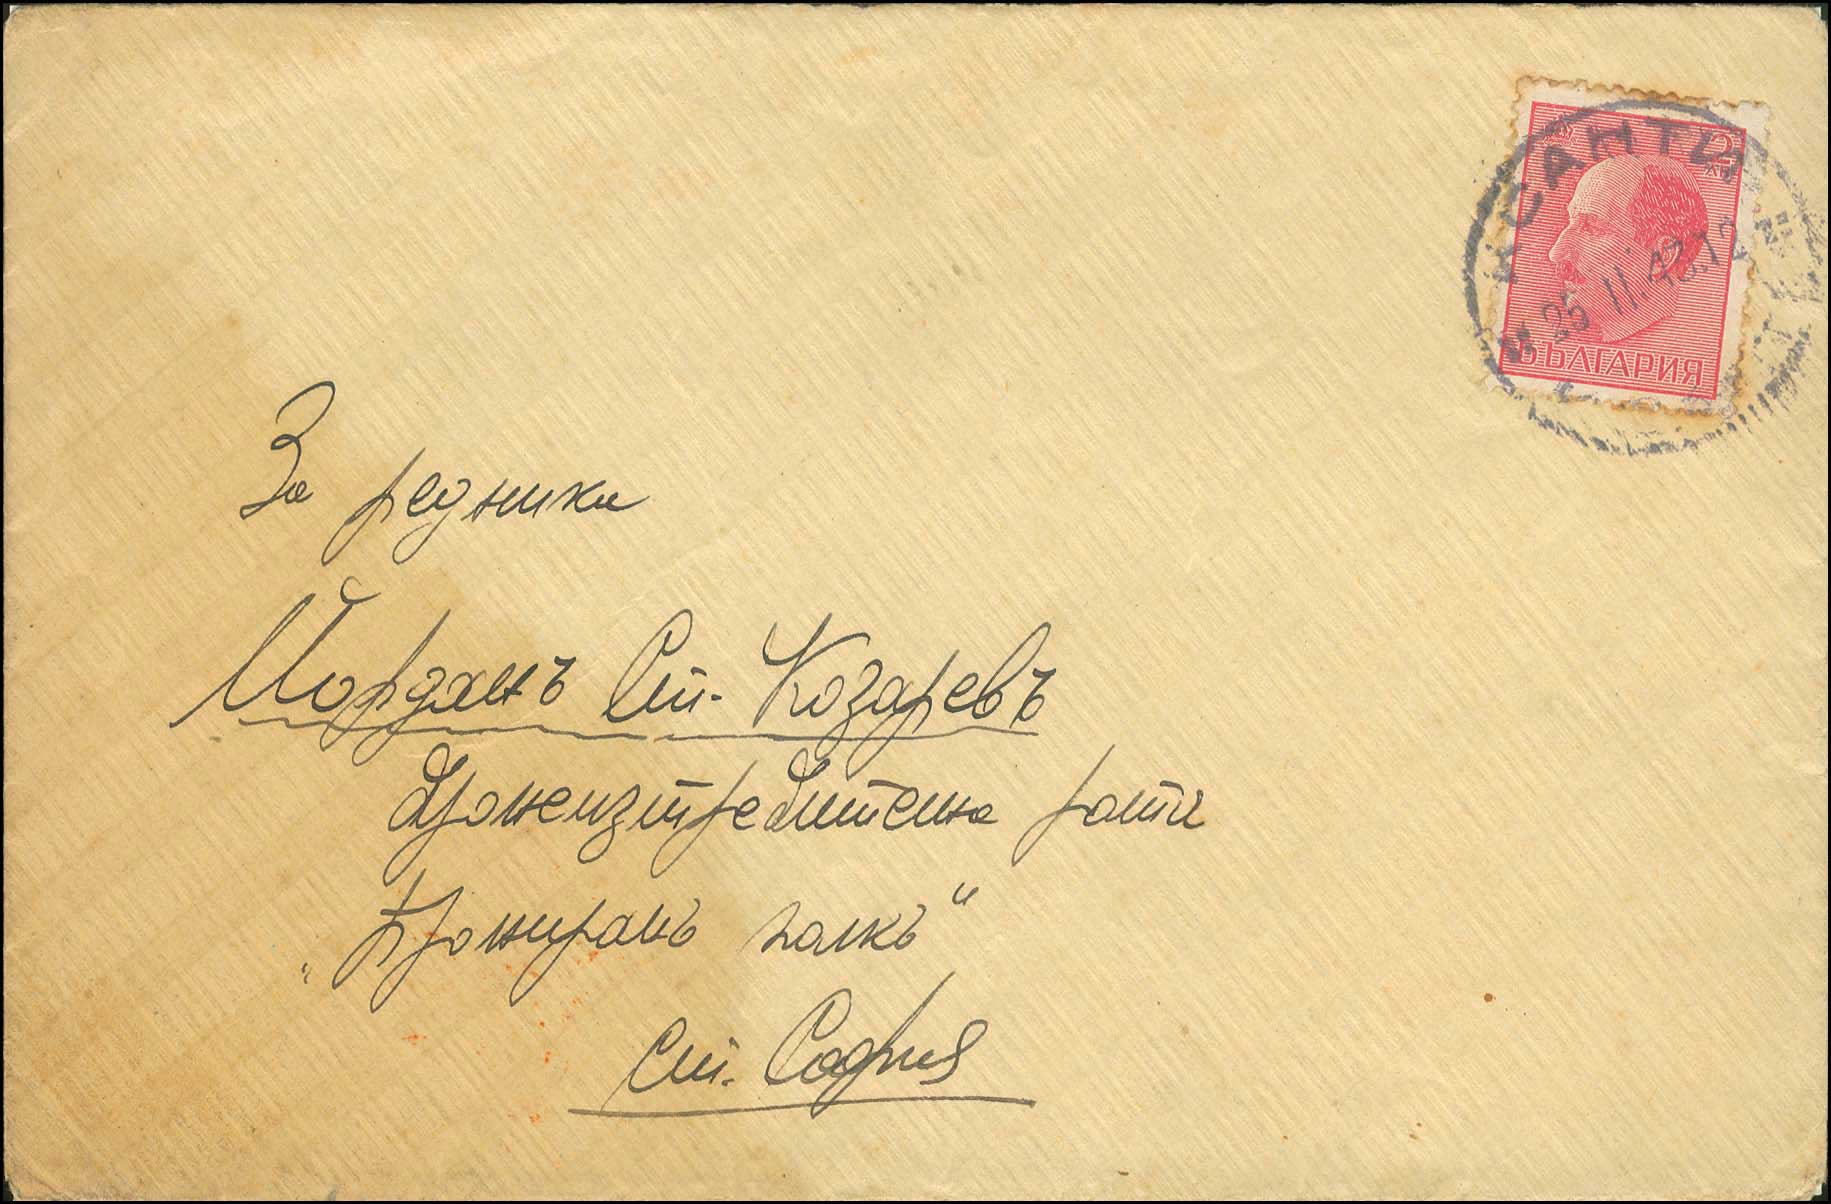 КСАНТИ
25.II.43.12
2
ЛВ
БЪЛГАРИЯ
За редника
Йорданъ Ст. Козаревъ
Бронеизтребителна рота
„Брониранъ полкъ“
ст. София